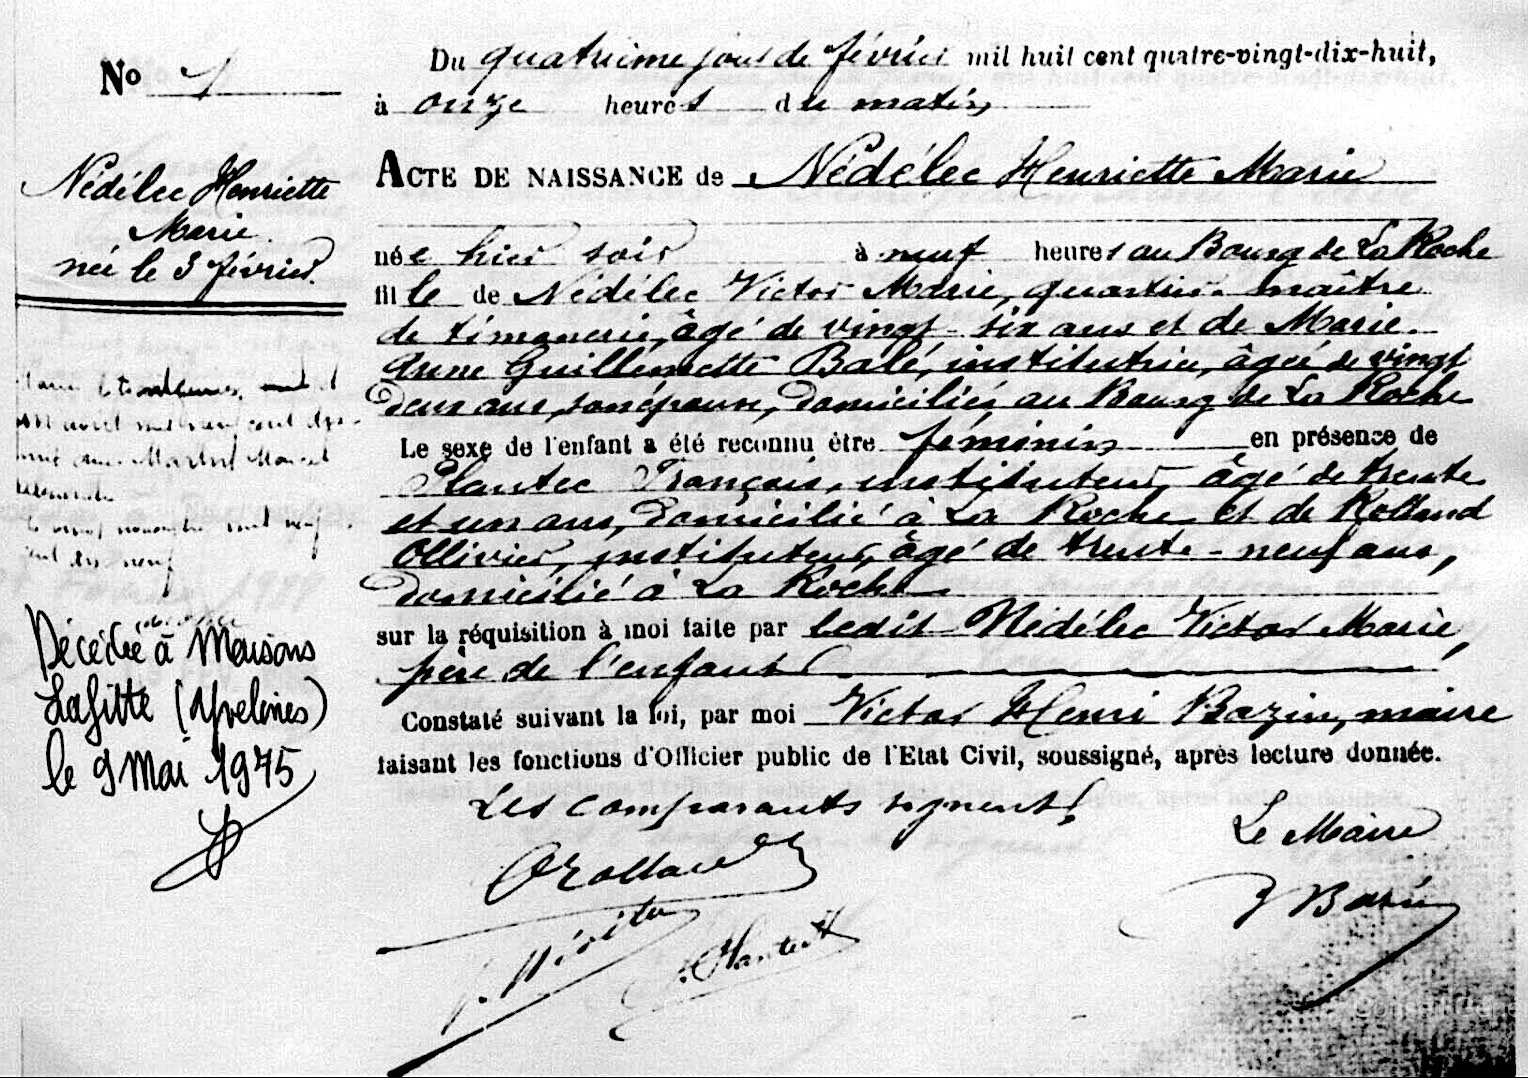 No 4
Nédélec Henriette
Marie
née le 3 février.
cent
Martial Marcel
le vingt novembre mil neuf
cent dix neuf
Décédée à Maisons
Lafitte (Yvelines)
le 9 Mai 1975
Du quatrième jour de février mil huit cent quatre-vingt-dix-huit,
à onze heures du matin
ACTE DE NAISSANCE de Nédélec Henriette Marie
née hier soir à neuf heures au Bourg de La Roche
fille de Nédélec Victor Marie, quartier-maître
de timonerie, âgé de vingt-six ans et de Marie
Anne Guillemette Balé, institutrice, âgée de vingt
deux ans, son épouse, domiciliés au Bourg de La Roche
Le sexe de l'enfant a été reconnu être féminin en présence de
Plantec François, instituteur, âgé de trente
et un ans, domicilié à La Roche et de Rolland
Ollivier, instituteur, âgé de trente-neuf ans,
domicilié à La Roche
sur la réquisition à moi faite par ledit Nédélec Victor Marie,
père de l'enfant
Constaté suivant la loi, par moi Victor Henri Bazin, maire
faisant les fonctions d'Officier public de l'Etat Civil, soussigné, après lecture donnée.
Les comparants signent.
Le Maire
ORolland
Plantec
VBazin